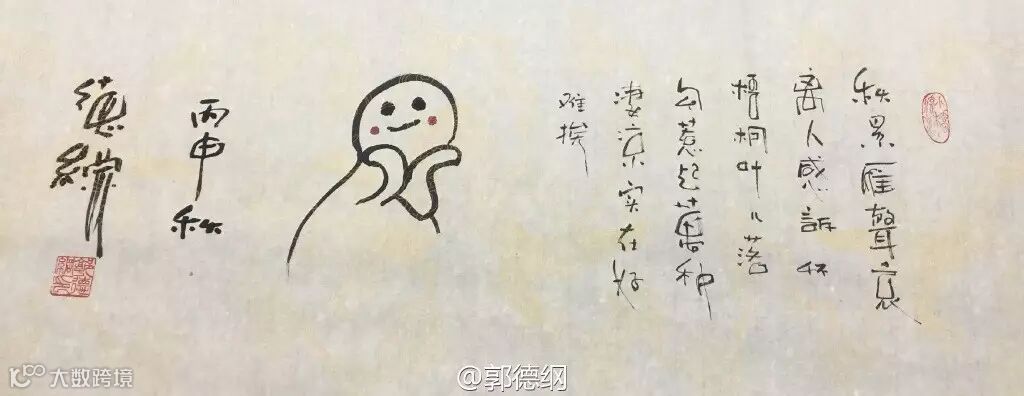 秋景雁聲哀
离人感訴怀
梧桐叶〃落
勾惹起萬种
凄凉实在好
难挨
丙申秋
德綱
大数跨境
@郭德纲